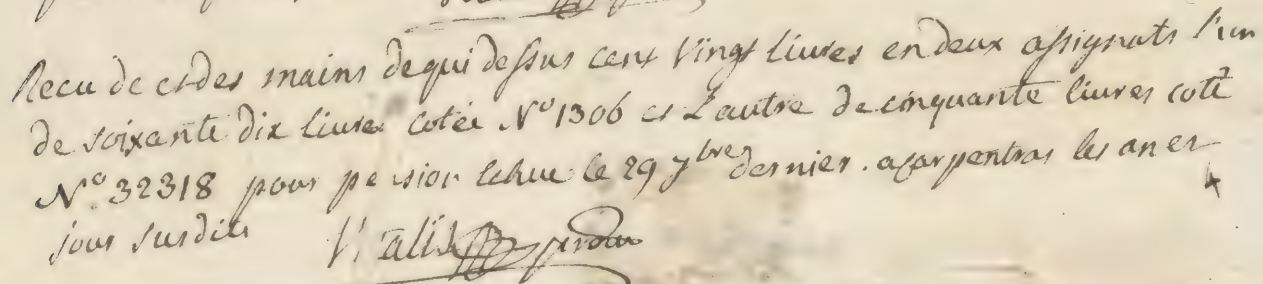 Recu de et des mains de qui dessus cent vingt livres en deux assignats l'un
de soixante dix livres cotée N° 1306 et L'autre de cinquante livres coté
N° 32318 pour pension echue le 29 7bre dernier. a carpentras les an et
jour susdits